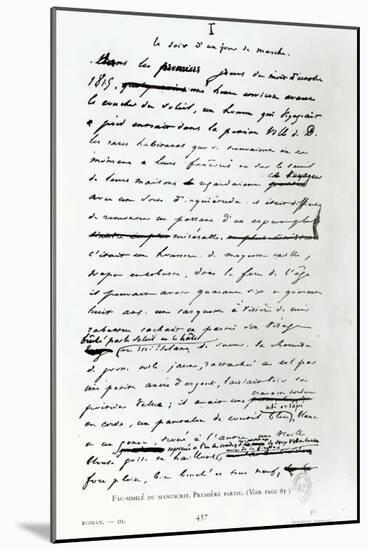 I
le soir d'un jour de marche.
Dans les premiers jours du mois d'octobre
1815, une heure environ avant
le coucher du soleil, un homme qui voyageait
à pied entrait dans la petite ville de D.
les rares habitants qui se trouvaient en ce
moment à leurs fenêtres ou sur le seuil
de leurs maisons regardaient ce voyageur
avec une sorte d'inquiétude. il était difficile
de rencontrer un passant d'un aspect plus
misérable.
c'était un homme de moyenne taille,
trapu et robuste, dans la force de l'âge
il pouvait avoir quarante six ou quarante
huit ans. une casquette à visière de cuir
rabattue cachait en partie son visage
brûlé par le soleil et le hâle
de sueur. sa chemise
de grosse toile jaune, rattachée au col par
une petite ancre d'argent, laissait voir sa
poitrine velue; il avait une cravate tordue
en corde, un pantalon de coutil bleu, usé et râpé, blanc
à un genou, troué à l'autre, une vieille
blouse grise en haillons,
fort plein, bien bouclé et tout neuf,
FAC-SIMILÉ DU MANUSCRIT. PREMIÈRE PARTIE. (VOIR PAGE 65)
ROMAN. — III.
457